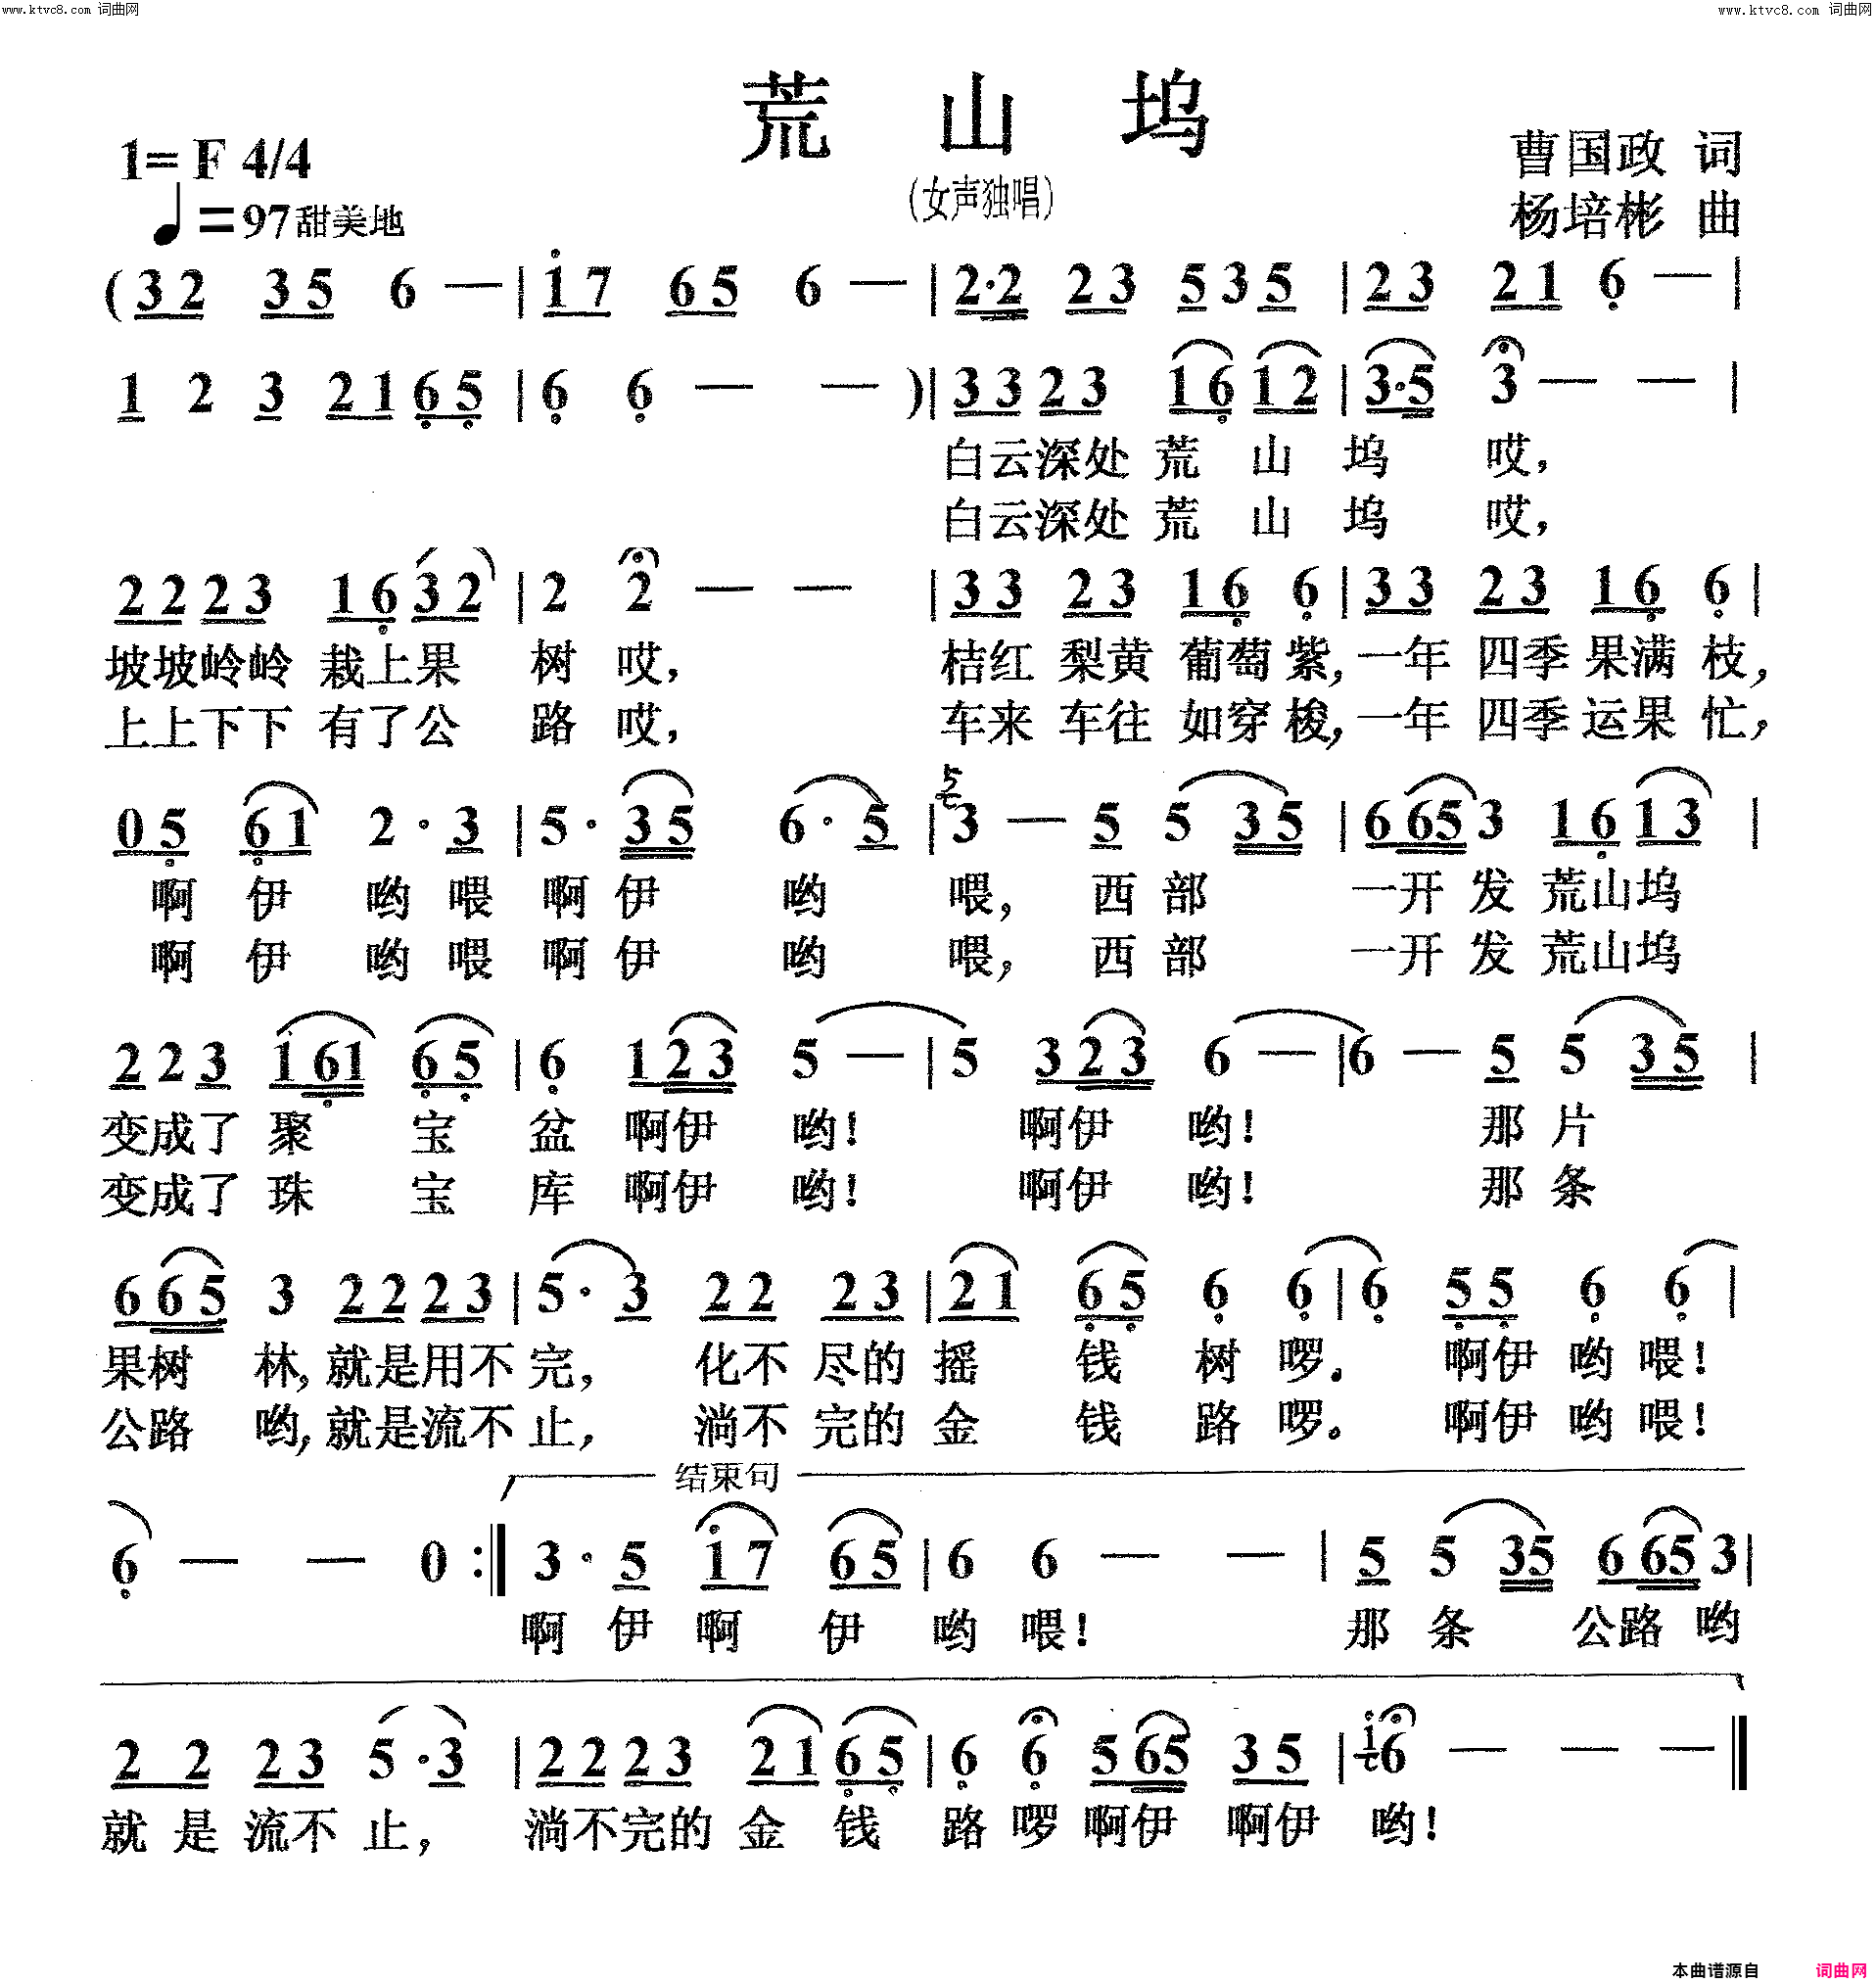 www.ktvc8.com 词曲网
www.ktvc8.com 词曲网
荒山坞
1= F 4/4
曹国政 词
(女声独唱)
♩=97甜美地
杨培彬 曲
(3 2 3 5 6 — | 1 7 6 5 6 — | 2·2 2 3 5 3 5 | 2 3 2 1 6 — |
1 2 3 2 1 6 5 | 6 6 — — )| 3 3 2 3 1 6 1 2 | 3·5 3 — — |
白云深处 荒 山 坞 哎，
白云深处 荒 山 坞 哎，
2 2 2 3 1 6 3 2 | 2 2 — — | 3 3 2 3 1 6 6 | 3 3 2 3 1 6 6 |
坡坡岭岭 栽上果 树 哎， 桔红 梨黄 葡萄 紫，一年 四季 果满 枝，
上上下下 有了公 路 哎， 车来 车往 如穿 梭，一年 四季 运果 忙，
0 5 6 1 2 · 3 | 5 · 3 5 6 · 5 | 5 3 — 5 5 3 5 | 6 6 5 3 1 6 1 3 |
啊 伊 哟 喂 啊 伊 哟 喂， 西 部 一开 发 荒山坞
啊 伊 哟 喂 啊 伊 哟 喂， 西 部 一开 发 荒山坞
2 2 3 1 6 1 6 5 | 6 1 2 3 5 — | 5 3 2 3 6 — | 6 — 5 5 3 5 |
变成了 聚 宝 盆 啊伊 哟！ 啊伊 哟！ 那 片
变成了 珠 宝 库 啊伊 哟！ 啊伊 哟！ 那 条
6 6 5 3 2 2 2 3 | 5 · 3 2 2 2 3 | 2 1 6 5 6 6 | 6 5 5 6 6 |
果树 林，就是用不 完， 化不 尽的 摇 钱 树 啰。 啊伊 哟 喂！
公路 哟，就是流不 止， 淌不 完的 金 钱 路 啰。 啊伊 哟 喂！
结束句
6 — — 0 :‖ 3 · 5 1 7 6 5 | 6 6 — — | 5 5 3 5 6 6 5 3 |
啊 伊 啊 伊 哟 喂！ 那 条 公路 哟
2 2 2 3 5 · 3 | 2 2 2 3 2 1 6 5 | 6 6 5 6 5 3 5 | 1 6 — — — ‖
就 是 流不 止， 淌不完的 金 钱 路 啰 啊伊 啊伊 哟！
本曲谱源自 词曲网